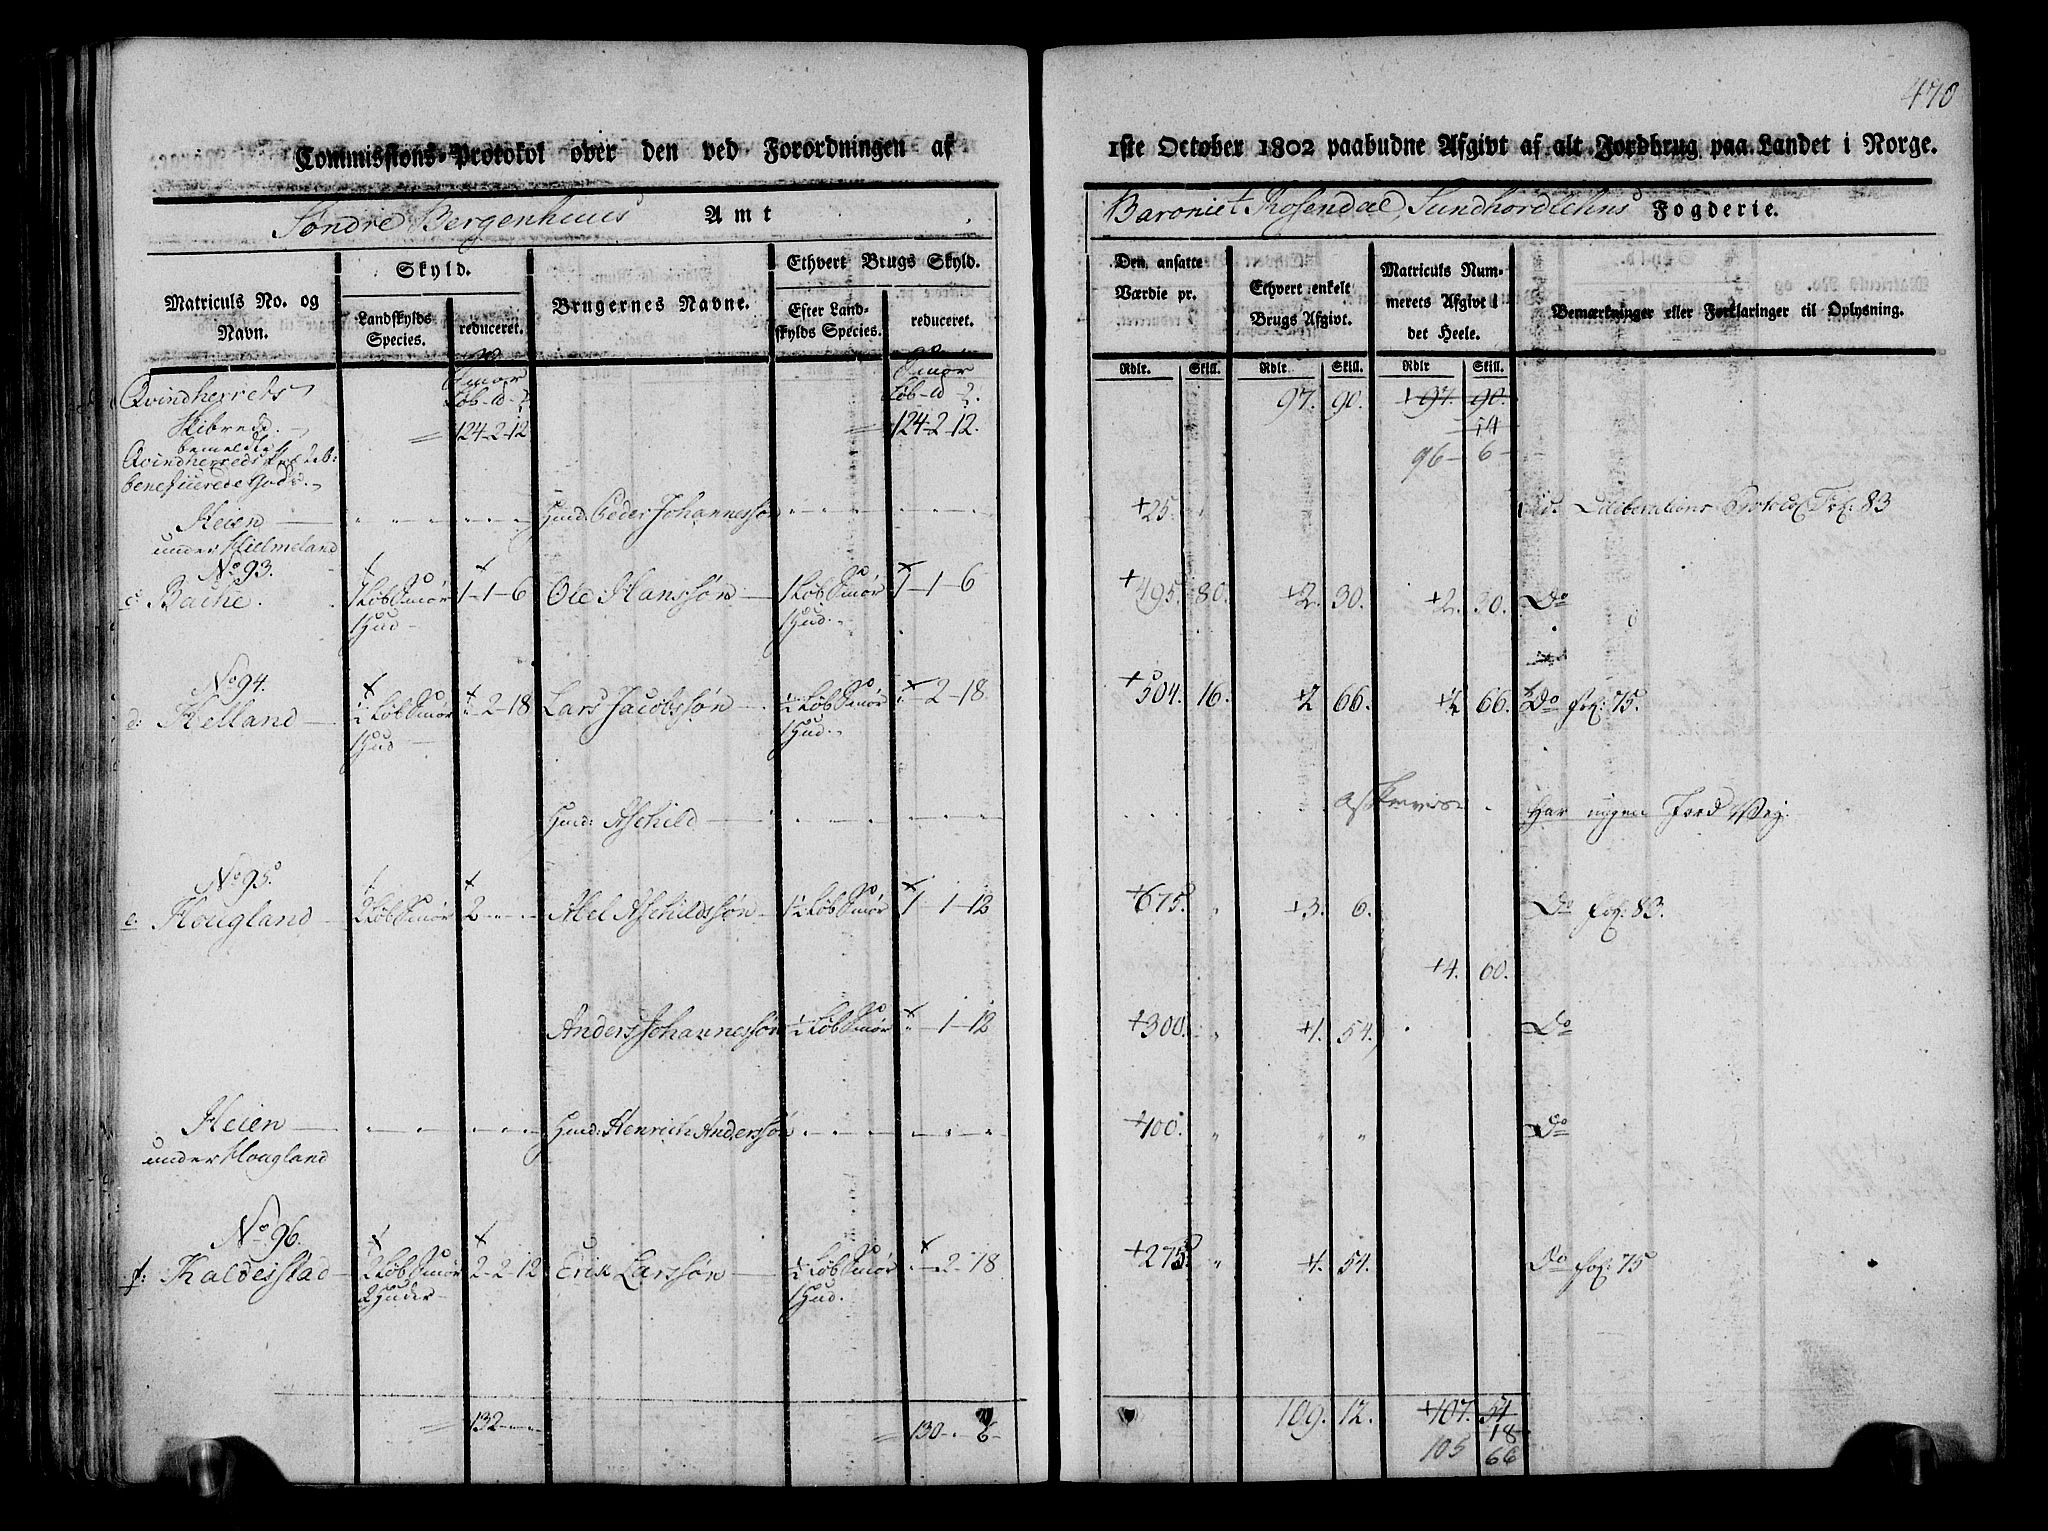 470
Commissions-Protokol over den ved Forordningen af 1ste October 1802 paabudne Afgivt af alt Jordbrug paa Landet i Norge.
Søndre Bergenhuus Amt
Baroniet Rosendal, Sundhordlehns Fogderie.
Matriculs No. og Navn.
Skyld.
Landskylds Species.
reduceret.
Brugernes Navne.
Ethvert Brugs Skyld.
Efter Landskylds Species.
reduceret.
Den ansatte Værdie pr.
Ethvert enkelt Brugs Afgivt.
Matriculs Nummerets Afgivt i det Heele.
Bemærkninger eller Forklaringer til Oplysning.
Rdlr. Skill. Rdlr Skill. Rdlr Skill.
Qvindherrets Smør Smør
Løb - Løb - 97. 90. +97. 90.
Skibrede. 124-2-12 124-2-12. 14
bemeldte 96 - 6 -
Qvindherreds
beneficerede Gods.
Heien Huusm: Peder Johannessøn +25. Deliberations Protocol Fol: 83
under Hielmeland
No 93.
c: Bache. 1 Løb Smør 1-1-6 Ole Hanssøn 1 Løb Smør 1-1-6 +495. 80. +2. 30. +2. 30. Do
1 Hud 1 Hud
No 94.
d: Helland ½ Løb Smør -2-18 Lars Jacobssøn ½ Løb Smør -2-18 +504. 16. +2 66. +2 66. Do Fol: 75.
1 Hud 1 Hud
Huusm: Aschild Har ingen Jord
No 95.
e: Hougland 2 Løb Smør 2 Abel Aschildssøn 1½ Løb Smør 1-1-12 +675. +3. 6. Do Fol: 83.
+4. 60.
Anders Johannessøn ½ Løb Smør -1-12 +300. +1. 54. Do
Heien Huusm: Henrich Anderssøn +100. Do
under Hougland
No 96.
f: Kaldestad 2 Løb Smør 2-2-12 Erik Larssøn ½ Løb Smør -2-18 +275. +1. 54. Do Fol: 75
2 Huder 1 Hud.
132 130 - 6 - 109. 12. +107. 54
18
105 66